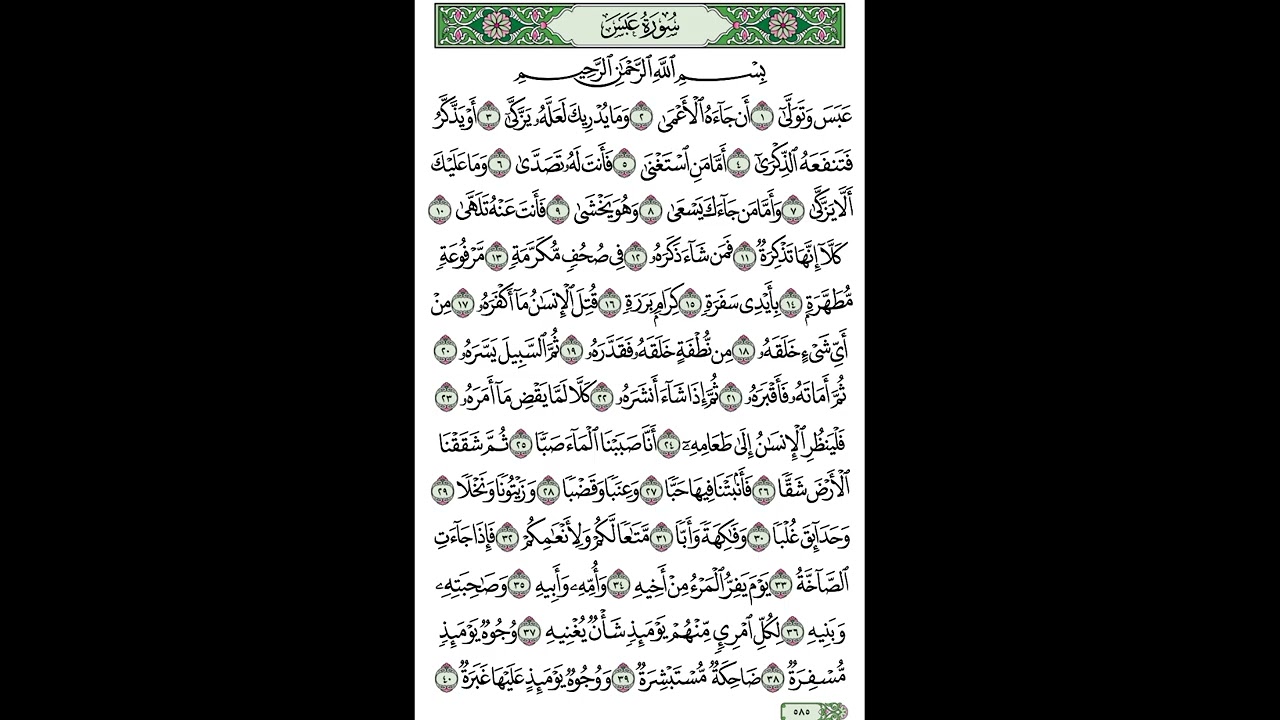 سُورَةُ عَبَسَ
بِسْمِ ٱللَّهِ ٱلرَّحْمَٰنِ ٱلرَّحِيمِ
عَبَسَ وَتَوَلَّىٰٓ ١ أَن جَآءَهُ ٱلْأَعْمَىٰ ٢ وَمَا يُدْرِيكَ لَعَلَّهُۥ يَزَّكَّىٰٓ ٣ أَوْ يَذَّكَّرُ
فَتَنفَعَهُ ٱلذِّكْرَىٰٓ ٤ أَمَّا مَنِ ٱسْتَغْنَىٰ ٥ فَأَنتَ لَهُۥ تَصَدَّىٰ ٦ وَمَا عَلَيْكَ
أَلَّا يَزَّكَّىٰ ٧ وَأَمَّا مَن جَآءَكَ يَسْعَىٰ ٨ وَهُوَ يَخْشَىٰ ٩ فَأَنتَ عَنْهُ تَلَهَّىٰ ١٠
كَلَّآ إِنَّهَا تَذْكِرَةٌ ١١ فَمَن شَآءَ ذَكَرَهُۥ ١٢ فِى صُحُفٍ مُّكَرَّمَةٍ ١٣ مَّرْفُوعَةٍ
مُّطَهَّرَةٍۭ ١٤ بِأَيْدِى سَفَرَةٍ ١٥ كِرَامٍۭ بَرَرَةٍ ١٦ قُتِلَ ٱلْإِنسَٰنُ مَآ أَكْفَرَهُۥ ١٧ مِنْ
أَىِّ شَىْءٍ خَلَقَهُۥ ١٨ مِن نُّطْفَةٍ خَلَقَهُۥ فَقَدَّرَهُۥ ١٩ ثُمَّ ٱلسَّبِيلَ يَسَّرَهُۥ ٢٠
ثُمَّ أَمَاتَهُۥ فَأَقْبَرَهُۥ ٢١ ثُمَّ إِذَا شَآءَ أَنشَرَهُۥ ٢٢ كَلَّا لَمَّا يَقْضِ مَآ أَمَرَهُۥ ٢٣
فَلْيَنظُرِ ٱلْإِنسَٰنُ إِلَىٰ طَعَامِهِۦٓ ٢٤ أَنَّا صَبَبْنَا ٱلْمَآءَ صَبًّا ٢٥ ثُمَّ شَقَقْنَا
ٱلْأَرْضَ شَقًّا ٢٦ فَأَنۢبَتْنَا فِيهَا حَبًّا ٢٧ وَعِنَبًا وَقَضْبًا ٢٨ وَزَيْتُونًا وَنَخْلًا ٢٩
وَحَدَآئِقَ غُلْبًا ٣٠ وَفَٰكِهَةً وَأَبًّا ٣١ مَّتَٰعًا لَّكُمْ وَلِأَنْعَٰمِكُمْ ٣٢ فَإِذَا جَآءَتِ
ٱلصَّآخَّةُ ٣٣ يَوْمَ يَفِرُّ ٱلْمَرْءُ مِنْ أَخِيهِ ٣٤ وَأُمِّهِۦ وَأَبِيهِ ٣٥ وَصَٰحِبَتِهِۦ
وَبَنِيهِ ٣٦ لِكُلِّ ٱمْرِئٍ مِّنْهُمْ يَوْمَئِذٍ شَأْنٌ يُغْنِيهِ ٣٧ وُجُوهٌ يَوْمَئِذٍ
مُّسْفِرَةٌ ٣٨ ضَاحِكَةٌ مُّسْتَبْشِرَةٌ ٣٩ وَوُجُوهٌ يَوْمَئِذٍ عَلَيْهَا غَبَرَةٌ ٤٠
٥٨٥